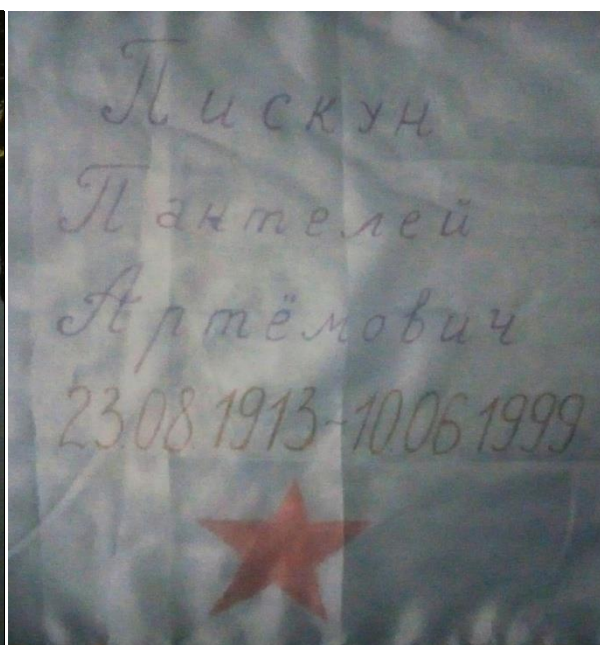 Пискун
Пантелей
Артёмович
23.08.1913-10.06.1999